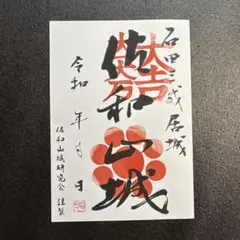 石田三成居城
大一大万大吉
佐和山城
令和 年 月 日
佐和山城研究会 謹製